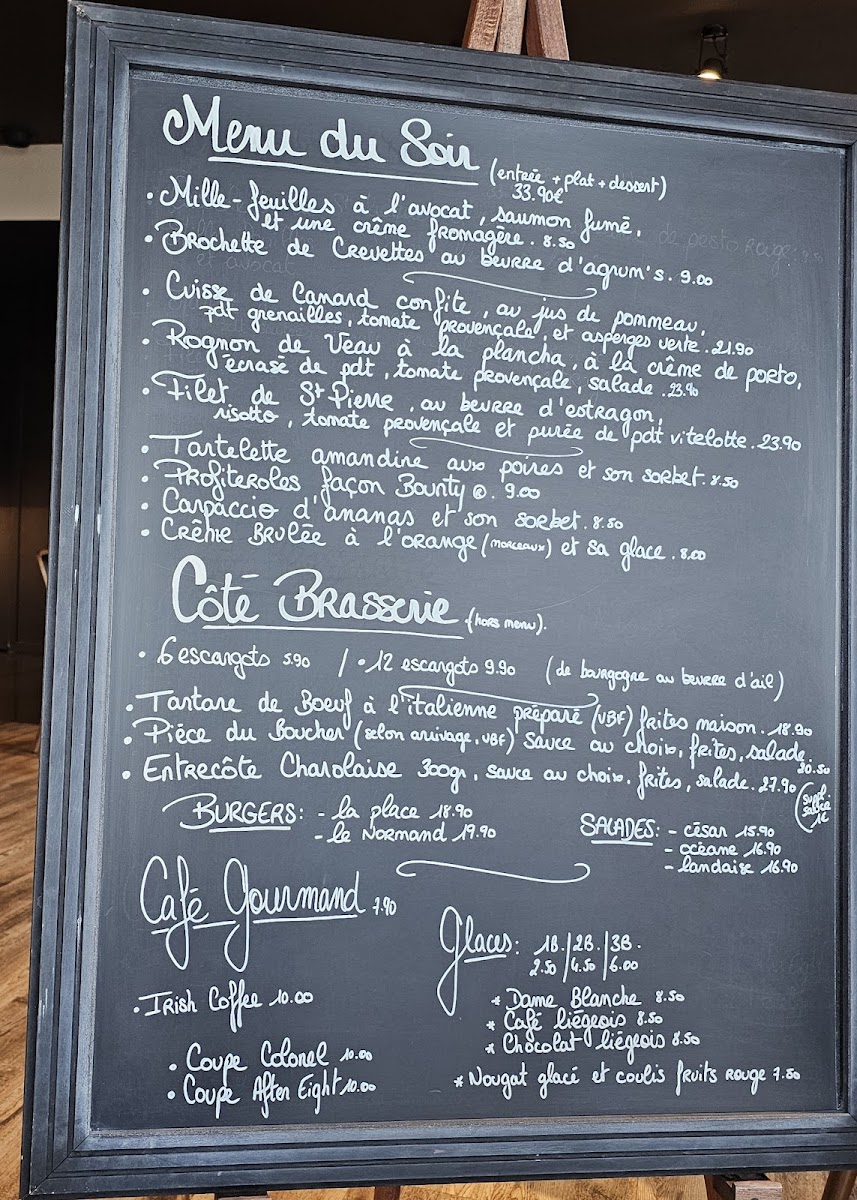 Menu du Soir (entrée + plat + dessert)
33.90€
• Mille-feuilles à l'avocat, saumon fumé,
et une crême fromagère. 8.50
• Brochette de Crevettes au beurre d'agrum's. 9.00
• Cuisse de Canard confite, au jus de pommeau,
pdt grenailles, tomate provençale, et asperges verte. 21.90
• Rognon de Veau à la plancha, à la crême de porto,
écrasé de pdt, tomate provençale, salade. 23.90
• Filet de St Pierre, au beurre d'estragon,
risotto, tomate provençale et purée de pdt vitelotte. 23.90
• Tartelette amandine aux poires et son sorbet. 8.50
• Profiteroles façon Bounty ®. 9.00
• Carpaccio d'ananas et son sorbet. 8.50
• Crême Brulée à l'orange (morceaux) et sa glace. 8.00
Côté Brasserie (hors menu).
• 6 escargots 5.90 / • 12 escargots 9.90 (de bourgogne au beurre d'ail)
• Tartare de Boeuf à l'italienne préparé (VBF) frites maison. 18.90
• Pièce du Boucher (selon arrivage, VBF) sauce au choix, frites, salade.
20.50
• Entrecôte Charolaise 300gr, sauce au choix, frites, salade. 27.90
(suppl. sauce 1€
BURGERS: - la place 18.90
- le Normand 19.90
SALADES: - césar 15.90
- océane 16.90
- landaise 16.90
Café Gourmand 7.90
Glaces: 1B. / 2B. / 3B.
2.50 / 4.50 / 6.00
• Irish Coffee 10.00
* Dame Blanche 8.50
* Café liégeois 8.50
* Chocolat liégeois 8.50
• Coupe Colonel 10.00
• Coupe After Eight 10.00
* Nougat glacé et coulis fruits rouge 7.50